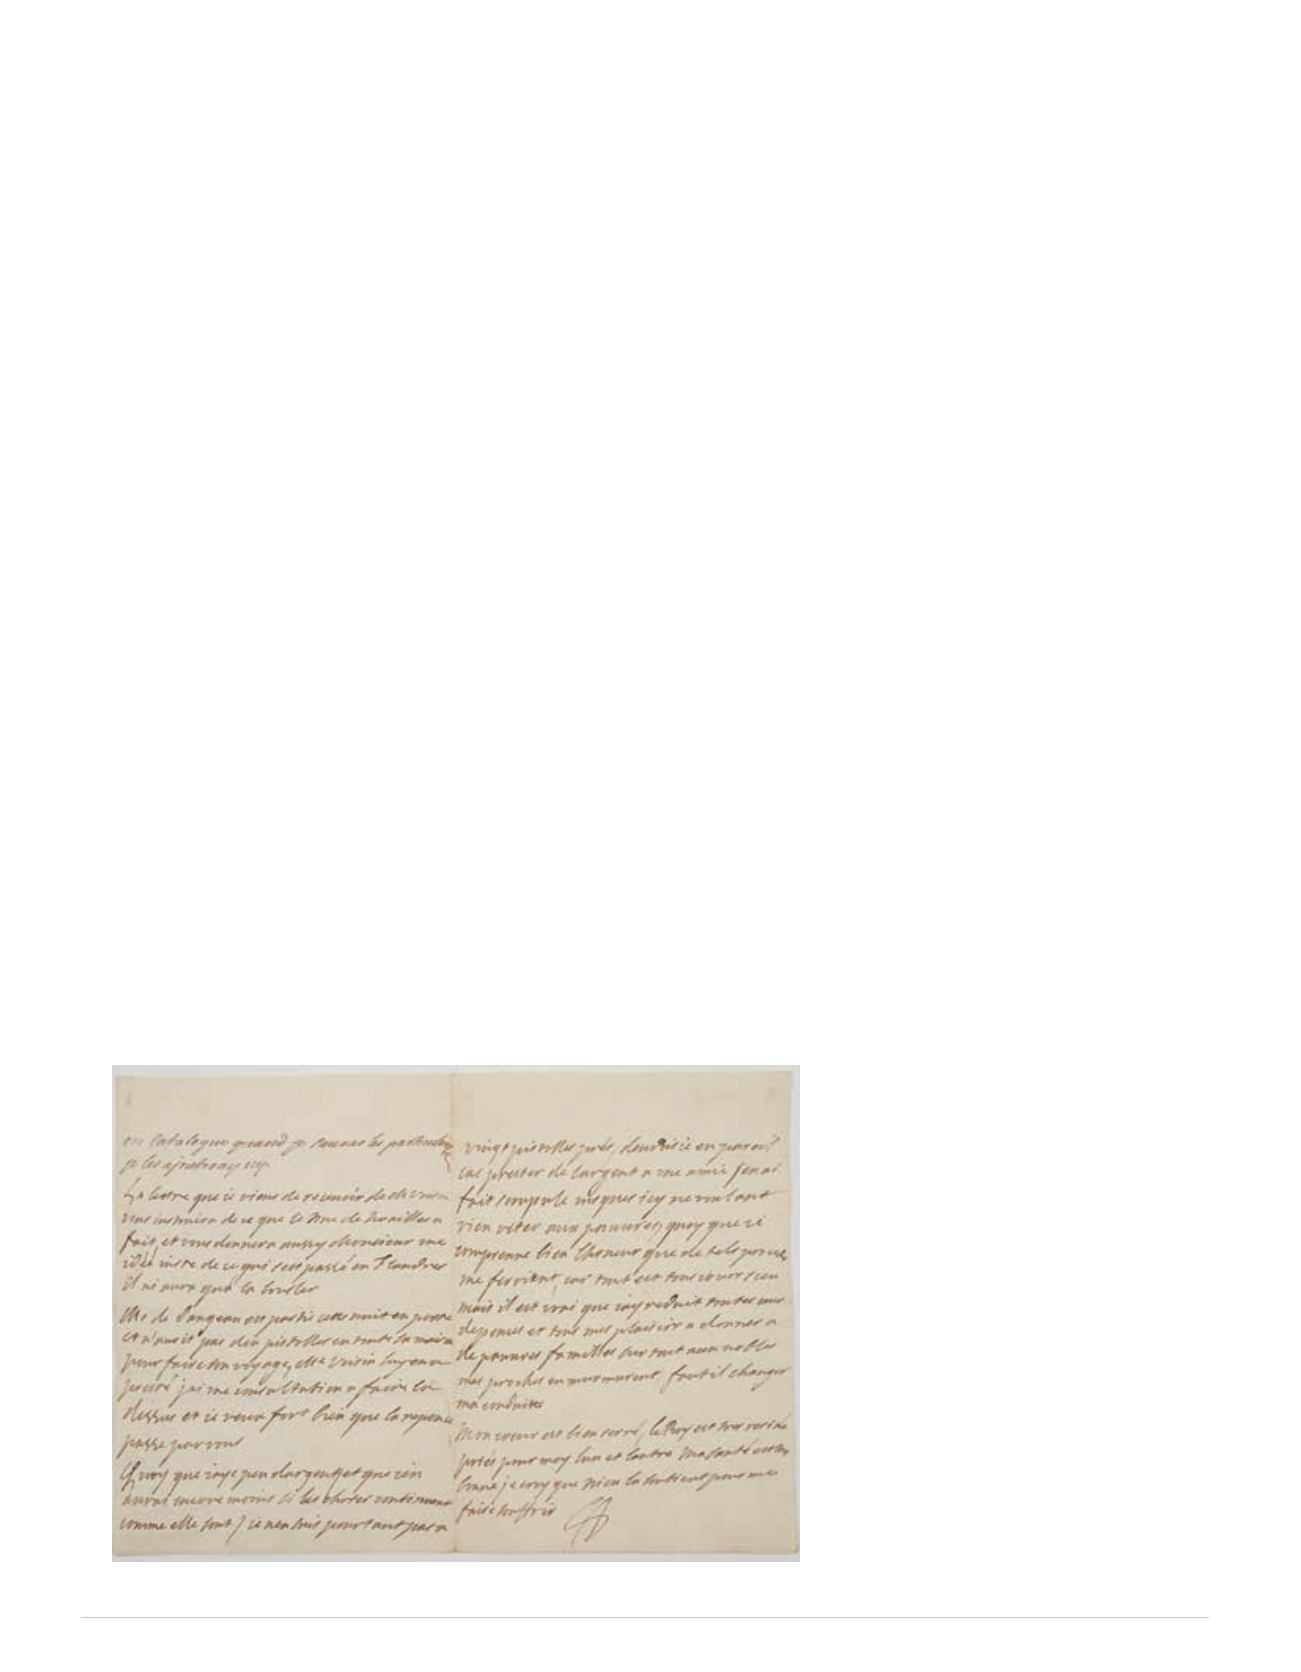 un catalogue quand je les
je les ajousteray icy
La lettre que ie viens de recevoir de
vous instruira de ce que le Duc de Noailles a
fait, et vous donnera aussy Monsieur une
idée iuste de ce qui sest passé en Flandres
il ni aura qua la brusler
Mr de Dangeau est partie cette nuit en poste
et n'avoit pas dix pistolles en toute sa maison
pour faire son voyage, Mr Voisin luy en a
presté jai une consultation a faire la
dessus et ie veux fort bien que la reponse
passe par vous
Quoy que iaye peu dargent et que ien
aurai encore moins si les choses continuent
comme elle sont) ie nen suis pourtant pas a
vingt pistolles près, devrois ie en pareil
cas prester de largent a une amie jen ai
fait scrupule iusques icy ne voulant
rien oster aux pauvres, quoy que ie
comprenne bien lhoneur que de tels
me feroient, car tout est tousiours sceu
mais il est vrai que iay reduit toutes mes
depences et tous mes plaisirs a donner a
de pauvres familles sur tout aux nobles
mes proches en murmurent, faut il changer
ma conduitte
Mon coeur est bien serré, le Roy est tres
priés pour moy lun et lautre Ma santé est
bonne je croy que Dieu la soutient pour me
faire souffrir